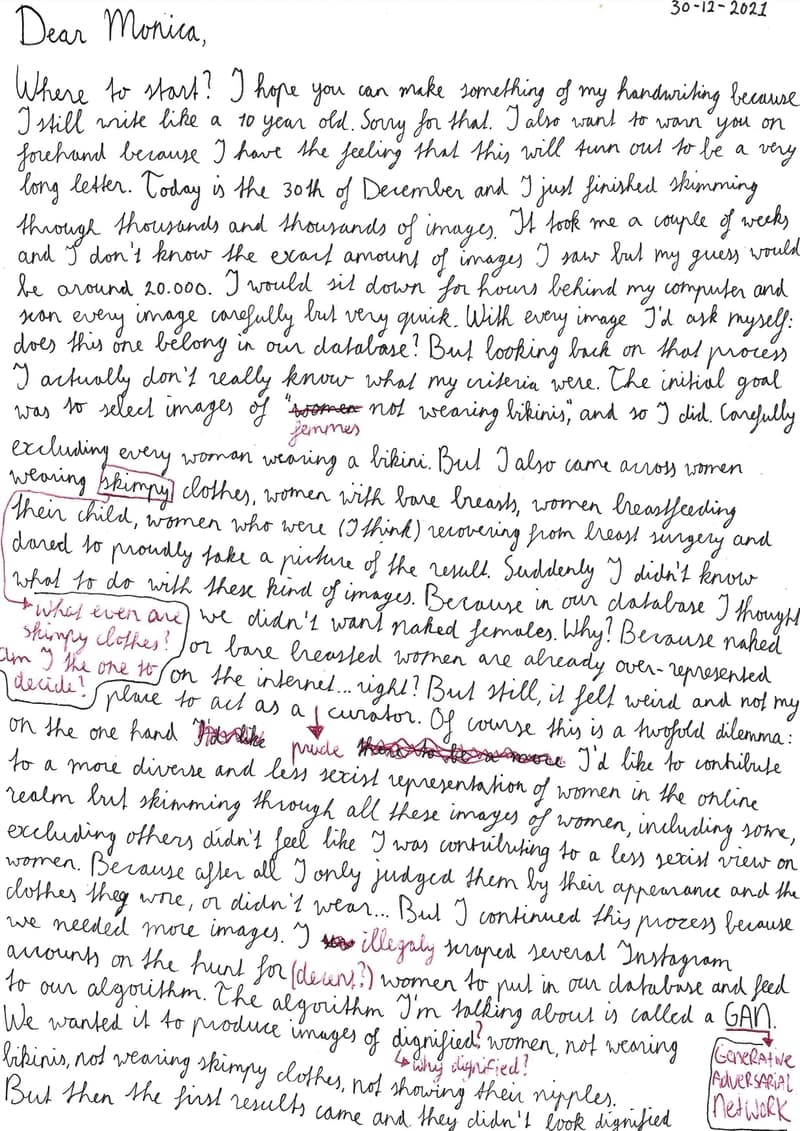 30-12-2021
Dear Monica,
Where to start? I hope you can make something of my handwriting because
I still write like a 10 year old. Sorry for that. I also want to warn you on
forehand because I have the feeling that this will turn out to be a very
long letter. Today is the 30th of December and I just finished skimming
through thousands and thousands of images. It took me a couple of weeks
and I don't know the exact amount of images I saw but my guess would
be around 20.000. I would sit down for hours behind my computer and
scan every image carefully but very quick. With every image I'd ask myself:
does this one belong in our database? But looking back on that process
I actually don't really know what my criteria were. The initial goal
was to select images of "women not wearing bikinis", and so I did. Carefully
femmes
excluding every woman wearing a bikini. But I also came across women
wearing skimpy clothes, women with bare breasts, women breastfeeding
their child, women who were (I think) recovering from breast surgery and
dared to proudly take a picture of the result. Suddenly I didn't know
what to do with these kind of images. Because in our database I thought
we didn't want naked females. Why? Because naked
or bare breasted women are already over-represented
on the internet... right? But still, it felt weird and not my
What even are
skimpy clothes?
Am I the one to
decide?
place to act as a curator. Of course this is a twofold dilemma:
prude
on the one hand I'd like to contribute
to a more diverse and less sexist representation of women in the online
realm but skimming through all these images of women, including some,
excluding others didn't feel like I was contributing to a less sexist view on
women. Because after all I only judged them by their appearance and the
clothes they wore, or didn't wear... But I continued this process because
we needed more images. I illegaly scraped several Instagram
accounts on the hunt for (decent?) women to put in our database and feed
to our algorithm. The algorithm I'm talking about is called a GAN.
We wanted it to produce images of dignified? women, not wearing
why dignified?
bikinis, not wearing skimpy clothes, not showing their nipples.
But then the first results came and they didn't look dignified
GENERATIVE
ADVERSARIAL
NETWORK